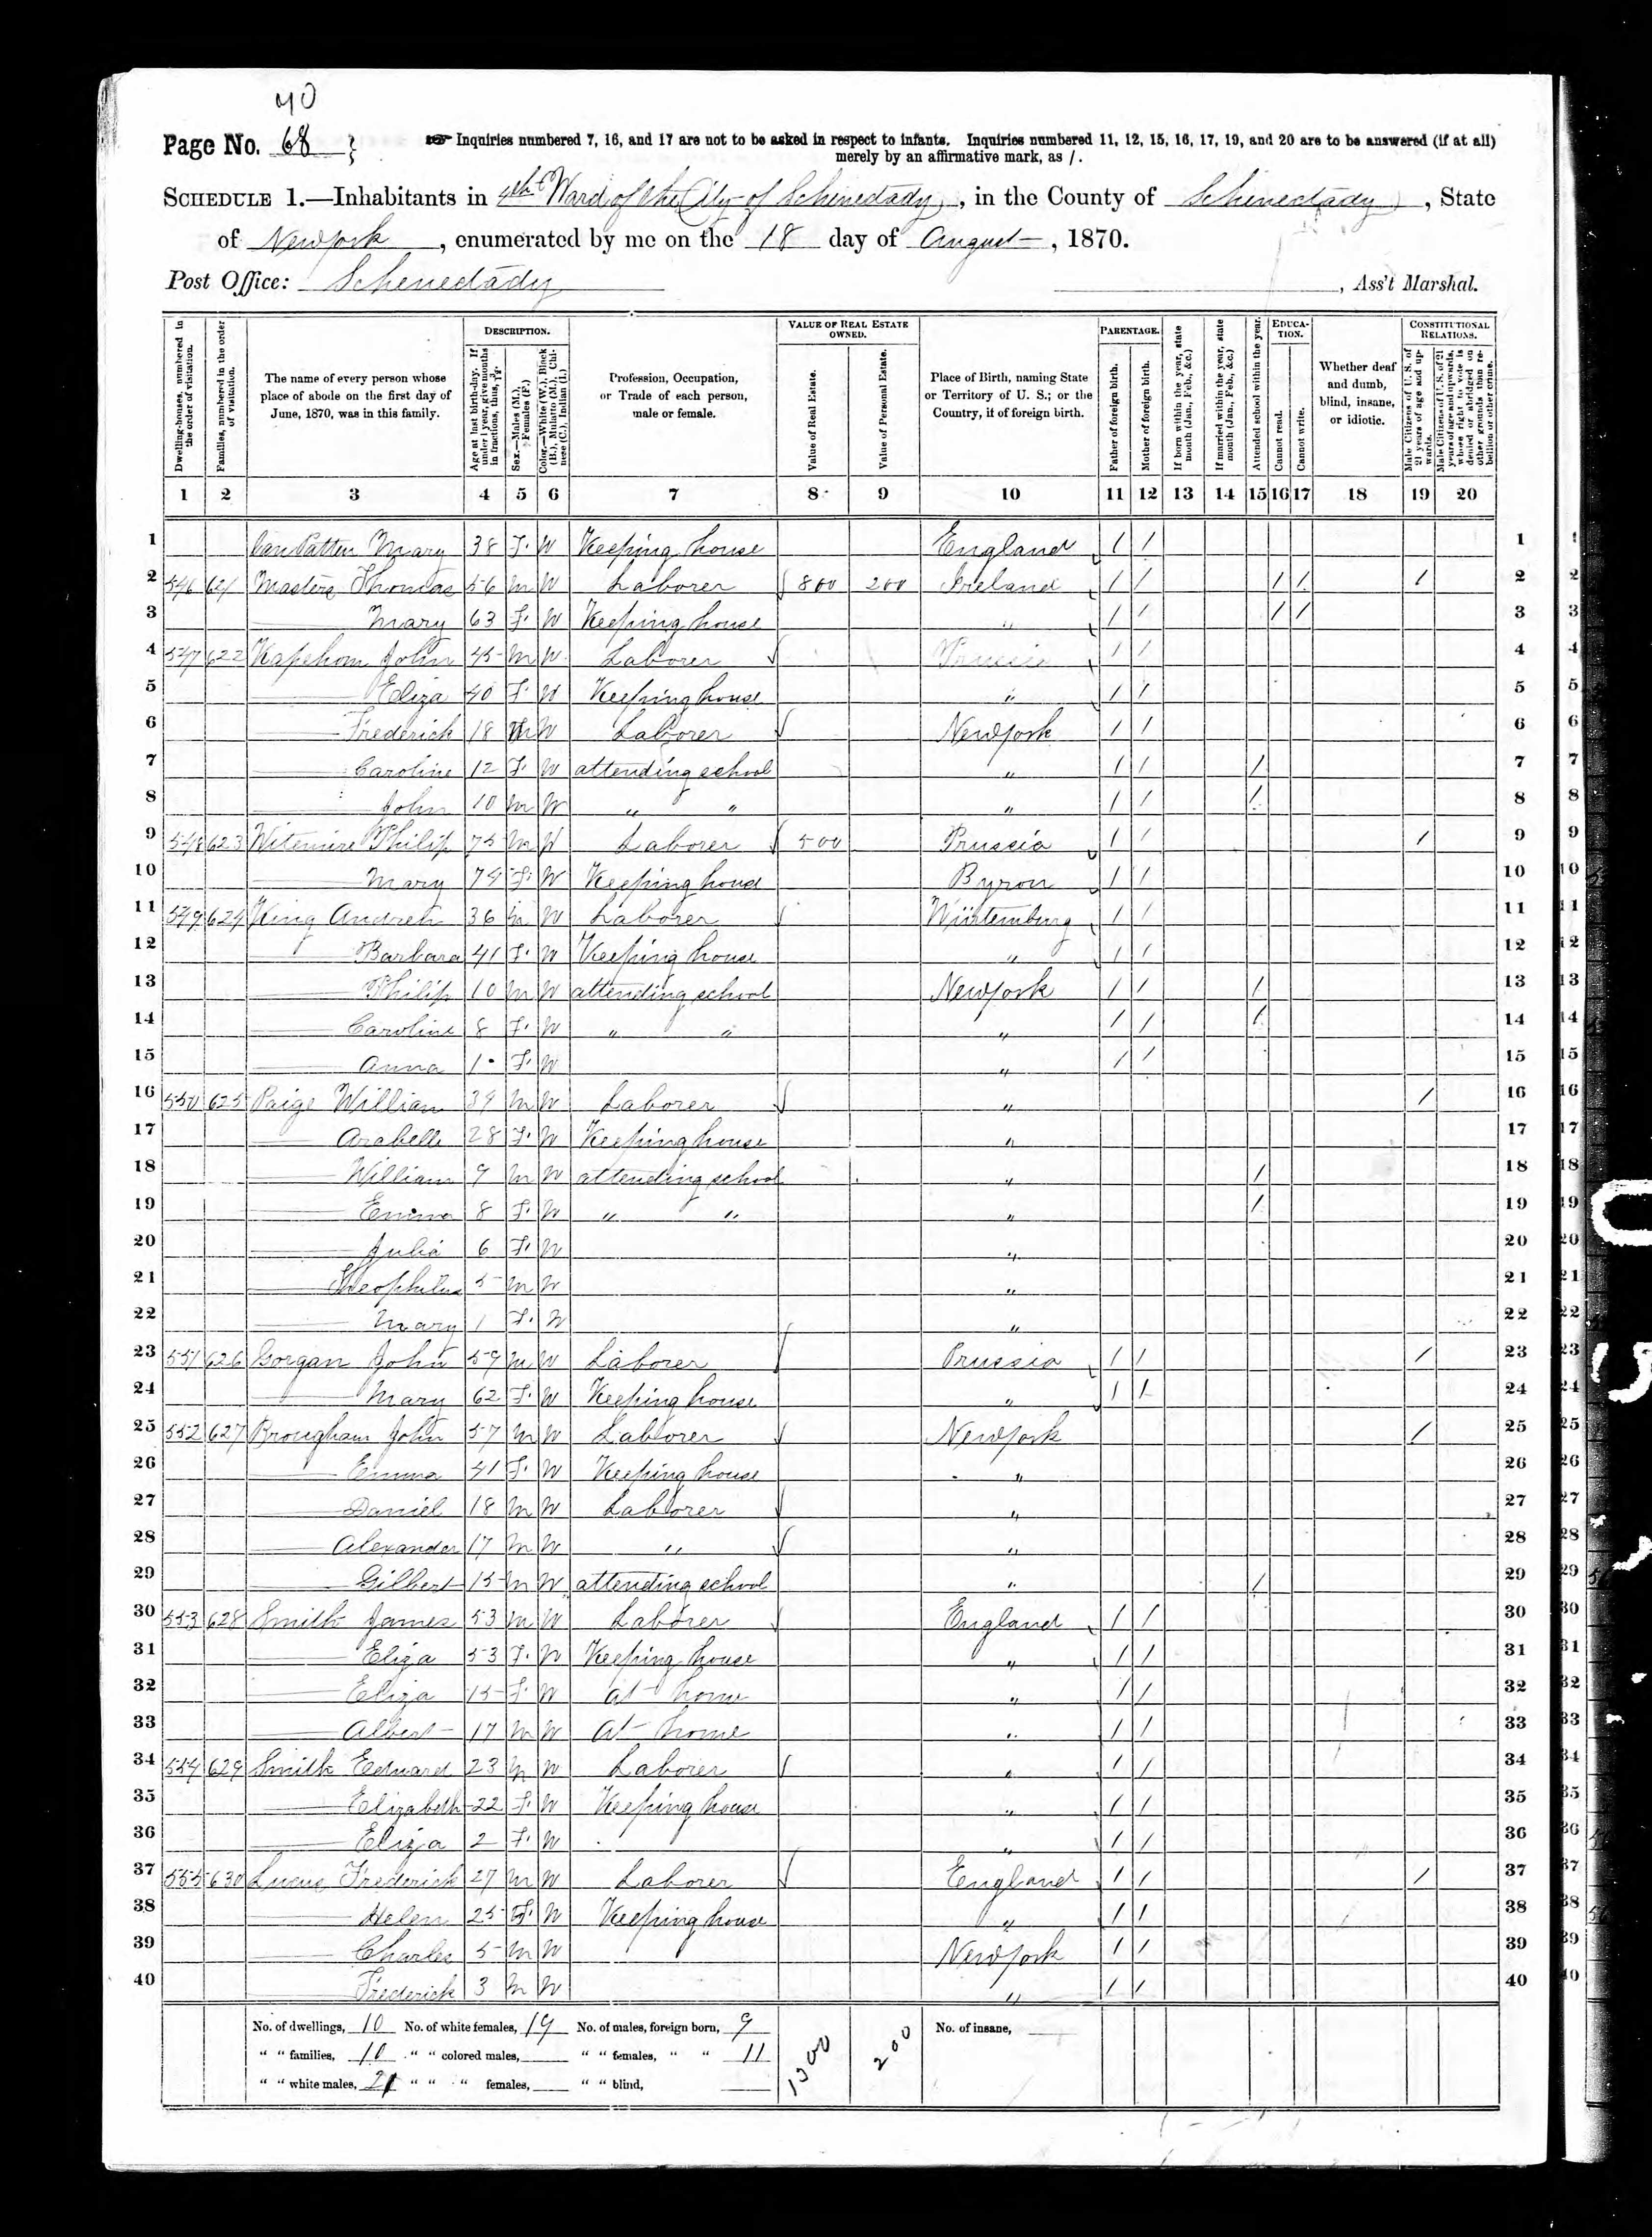 40
Page No. 68
Inquiries numbered 7, 16, and 17 are not to be asked in respect to infants. Inquiries numbered 11, 12, 15, 16, 17, 19, and 20 are to be answered (if at all)
merely by an affirmative mark, as /.
SCHEDULE 1.—Inhabitants in 4th Ward of the City of Schenectady, in the County of Schenectady, State
of New York, enumerated by me on the 18 day of August, 1870.
Post Office: Schenectady , Ass't Marshal.
Dwelling-houses, numbered in the order of visitation.
Families, numbered in the order of visitation.
The name of every person whose place of abode on the first day of June, 1870, was in this family.
DESCRIPTION.
Age at last birth-day. If under 1 year, give months in fractions, thus, 3/12.
Sex.—Males (M.), Females (F.)
Color.—White (W.), Black (B.), Mulatto (M.), Chinese (C.), Indian (I.)
Profession, Occupation, or Trade of each person, male or female.
VALUE OF REAL ESTATE OWNED.
Value of Real Estate.
Value of Personal Estate.
Place of Birth, naming State or Territory of U. S.; or the Country, if of foreign birth.
PARENTAGE.
Father of foreign birth.
Mother of foreign birth.
If born within the year, state month (Jan., Feb., &c.)
If married within the year, state month (Jan., Feb., &c.)
Attended school within the year.
EDUCATION.
Cannot read.
Cannot write.
Whether deaf and dumb, blind, insane, or idiotic.
CONSTITUTIONAL RELATIONS.
Male Citizens of U. S. of 21 years of age and upwards.
Male Citizens of U. S. of 21 years of age and upwards, whose right to vote is denied or abridged on other grounds than rebellion or other crime.
1 2 3 4 5 6 7 8 9 10 11 12 13 14 15 16 17 18 19 20
1 Van Patten Mary 38 F. W Keeping house England / / 1
2 546 621 Masters Thomas 56 M W Laborer 800 200 Ireland / / / / / 2
3 Mary 63 F. W Keeping house " / / / / 3
4 547 622 John 45 M W Laborer Prussia / / 4
5 Eliza 40 F. W Keeping house " / / 5
6 Frederick 18 M W Laborer New York / / 6
7 Caroline 12 F. W attending school " / / / 7
8 John 10 M W " " " / / / 8
9 548 623 Witemire Philip 75 M W Laborer 500 Prussia / / / 9
10 Mary 74 F. W Keeping house Byron / / 10
11 549 624 King Andrew 36 M W Laborer Würtemburg / / 11
12 Barbara 41 F. W Keeping house " / / 12
13 Philip 10 M W attending school New York / / / 13
14 Caroline 8 F. W " " " / / / 14
15 Anna 1 F. W " / / 15
16 550 625 Paige William 39 M W Laborer " / 16
17 Arabelle 28 F. W Keeping house " 17
18 William 9 M W attending school " / 18
19 Emma 8 F. W " " " / 19
20 Julia 6 F. W " 20
21 Theophilus 5 M W " 21
22 Mary 1 F. W " 22
23 551 626 Gorgan John 59 M W Laborer Prussia / / / 23
24 Mary 62 F. W Keeping house " / / 24
25 552 627 Brougham John 57 M W Laborer New York / 25
26 Emma 41 F. W Keeping house " 26
27 Daniel 18 M W Laborer " 27
28 Alexander 17 M W " " 28
29 Gilbert 15 M W attending school " / 29
30 553 628 Smith James 53 M W Laborer England / / 30
31 Eliza 53 F. W Keeping house " / / 31
32 Eliza 15 F. W at home " / / 32
33 Albert 17 M W at home " / / 33
34 554 629 Smith Edward 23 M W Laborer " / / 34
35 Elizabeth 22 F. W Keeping house " / / 35
36 Eliza 2 F. W " / / 36
37 555 630 Lucus Frederick 27 M W Laborer England / / / 37
38 Helen 25 F. W Keeping house " / / 38
39 Charles 5 M W New York / / 39
40 Frederick 3 M W " / / 40
No. of dwellings, 10 No. of white females, 19 No. of males, foreign born, 9 1300 200 No. of insane,
" " families, 10 " " colored males, " " females, " " 11
" " white males, 21 " " " females, " " blind,